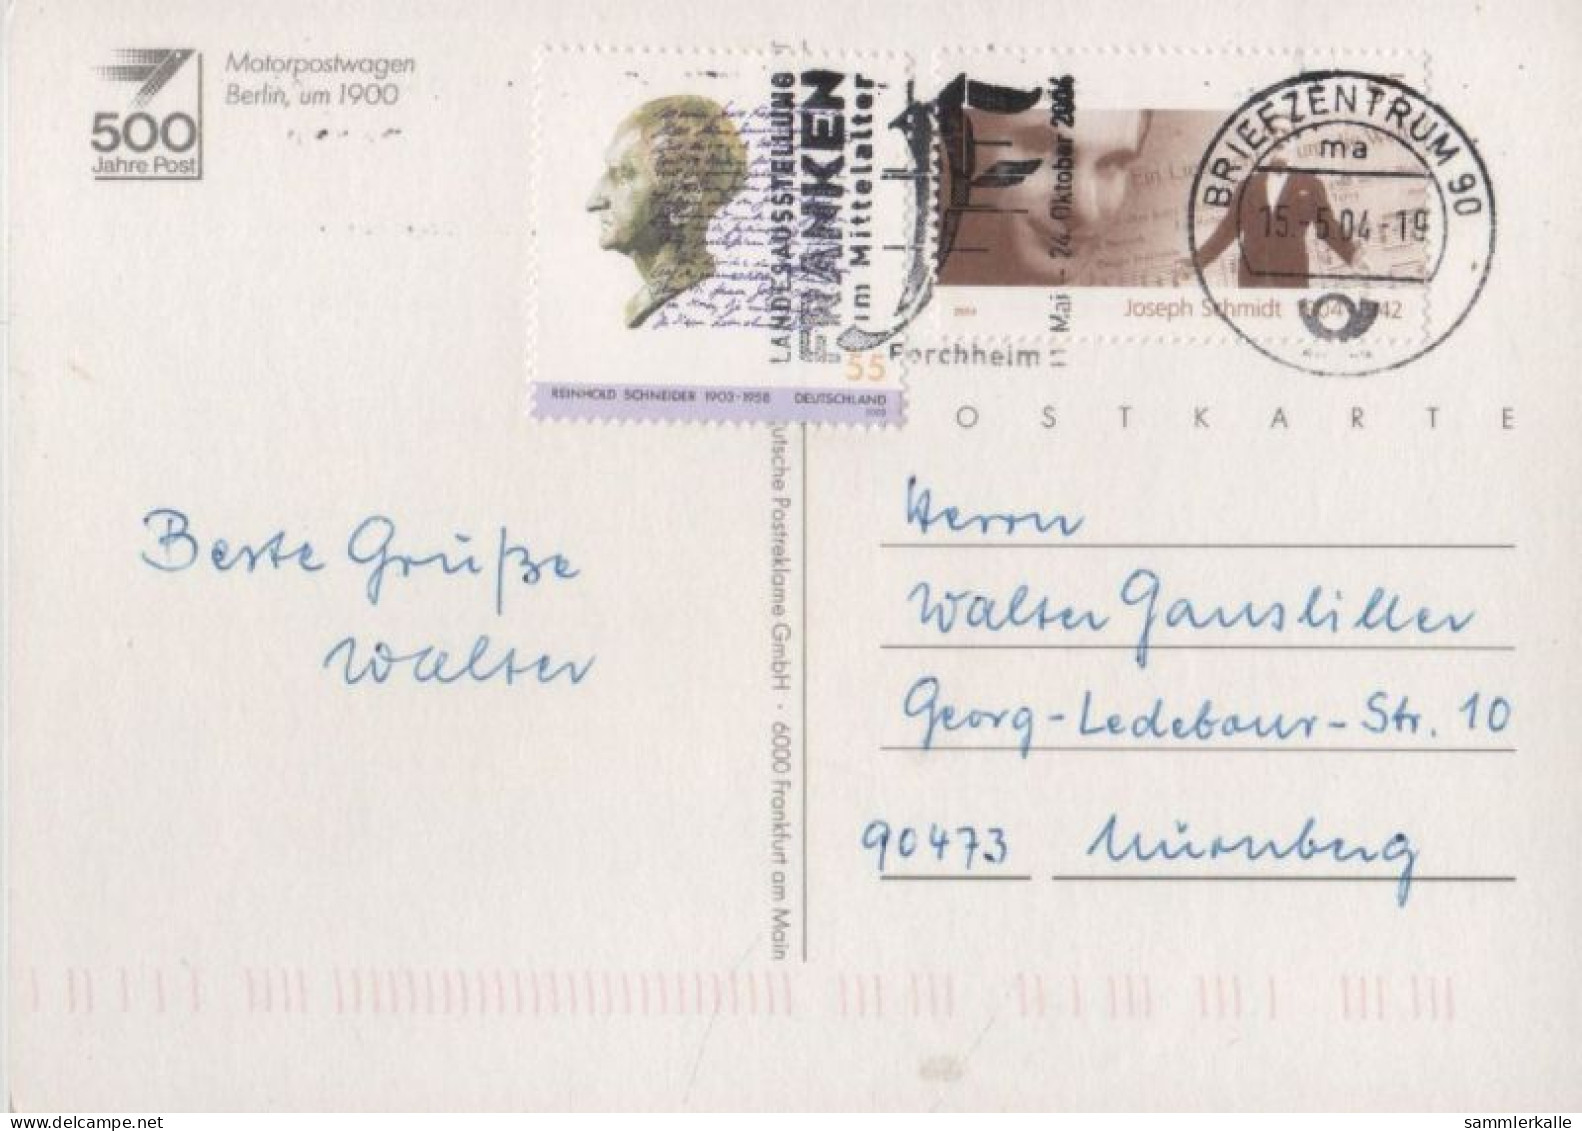 500
Jahre Post
Motorpostwagen
Berlin, um 1900
55
REINHOLD SCHNEIDER 1903-1958 DEUTSCHLAND
2003
LANDESAUSSTELLUNG
FRANKEN
im Mittelalter
Forchheim
11. Mai - 24. Oktober 2004
Ein Lied
2004
Joseph Schmidt 1904-1942
BRIEFZENTRUM 90
ma
15.-5.04-19
POSTKARTE
Deutsche Postreklame GmbH · 6000 Frankfurt am Main
Beste Grüße
Walter
Herrn
Walter Gansliller
Georg-Ledebour-Str. 10
90473 Nürnberg
sammlerkalle